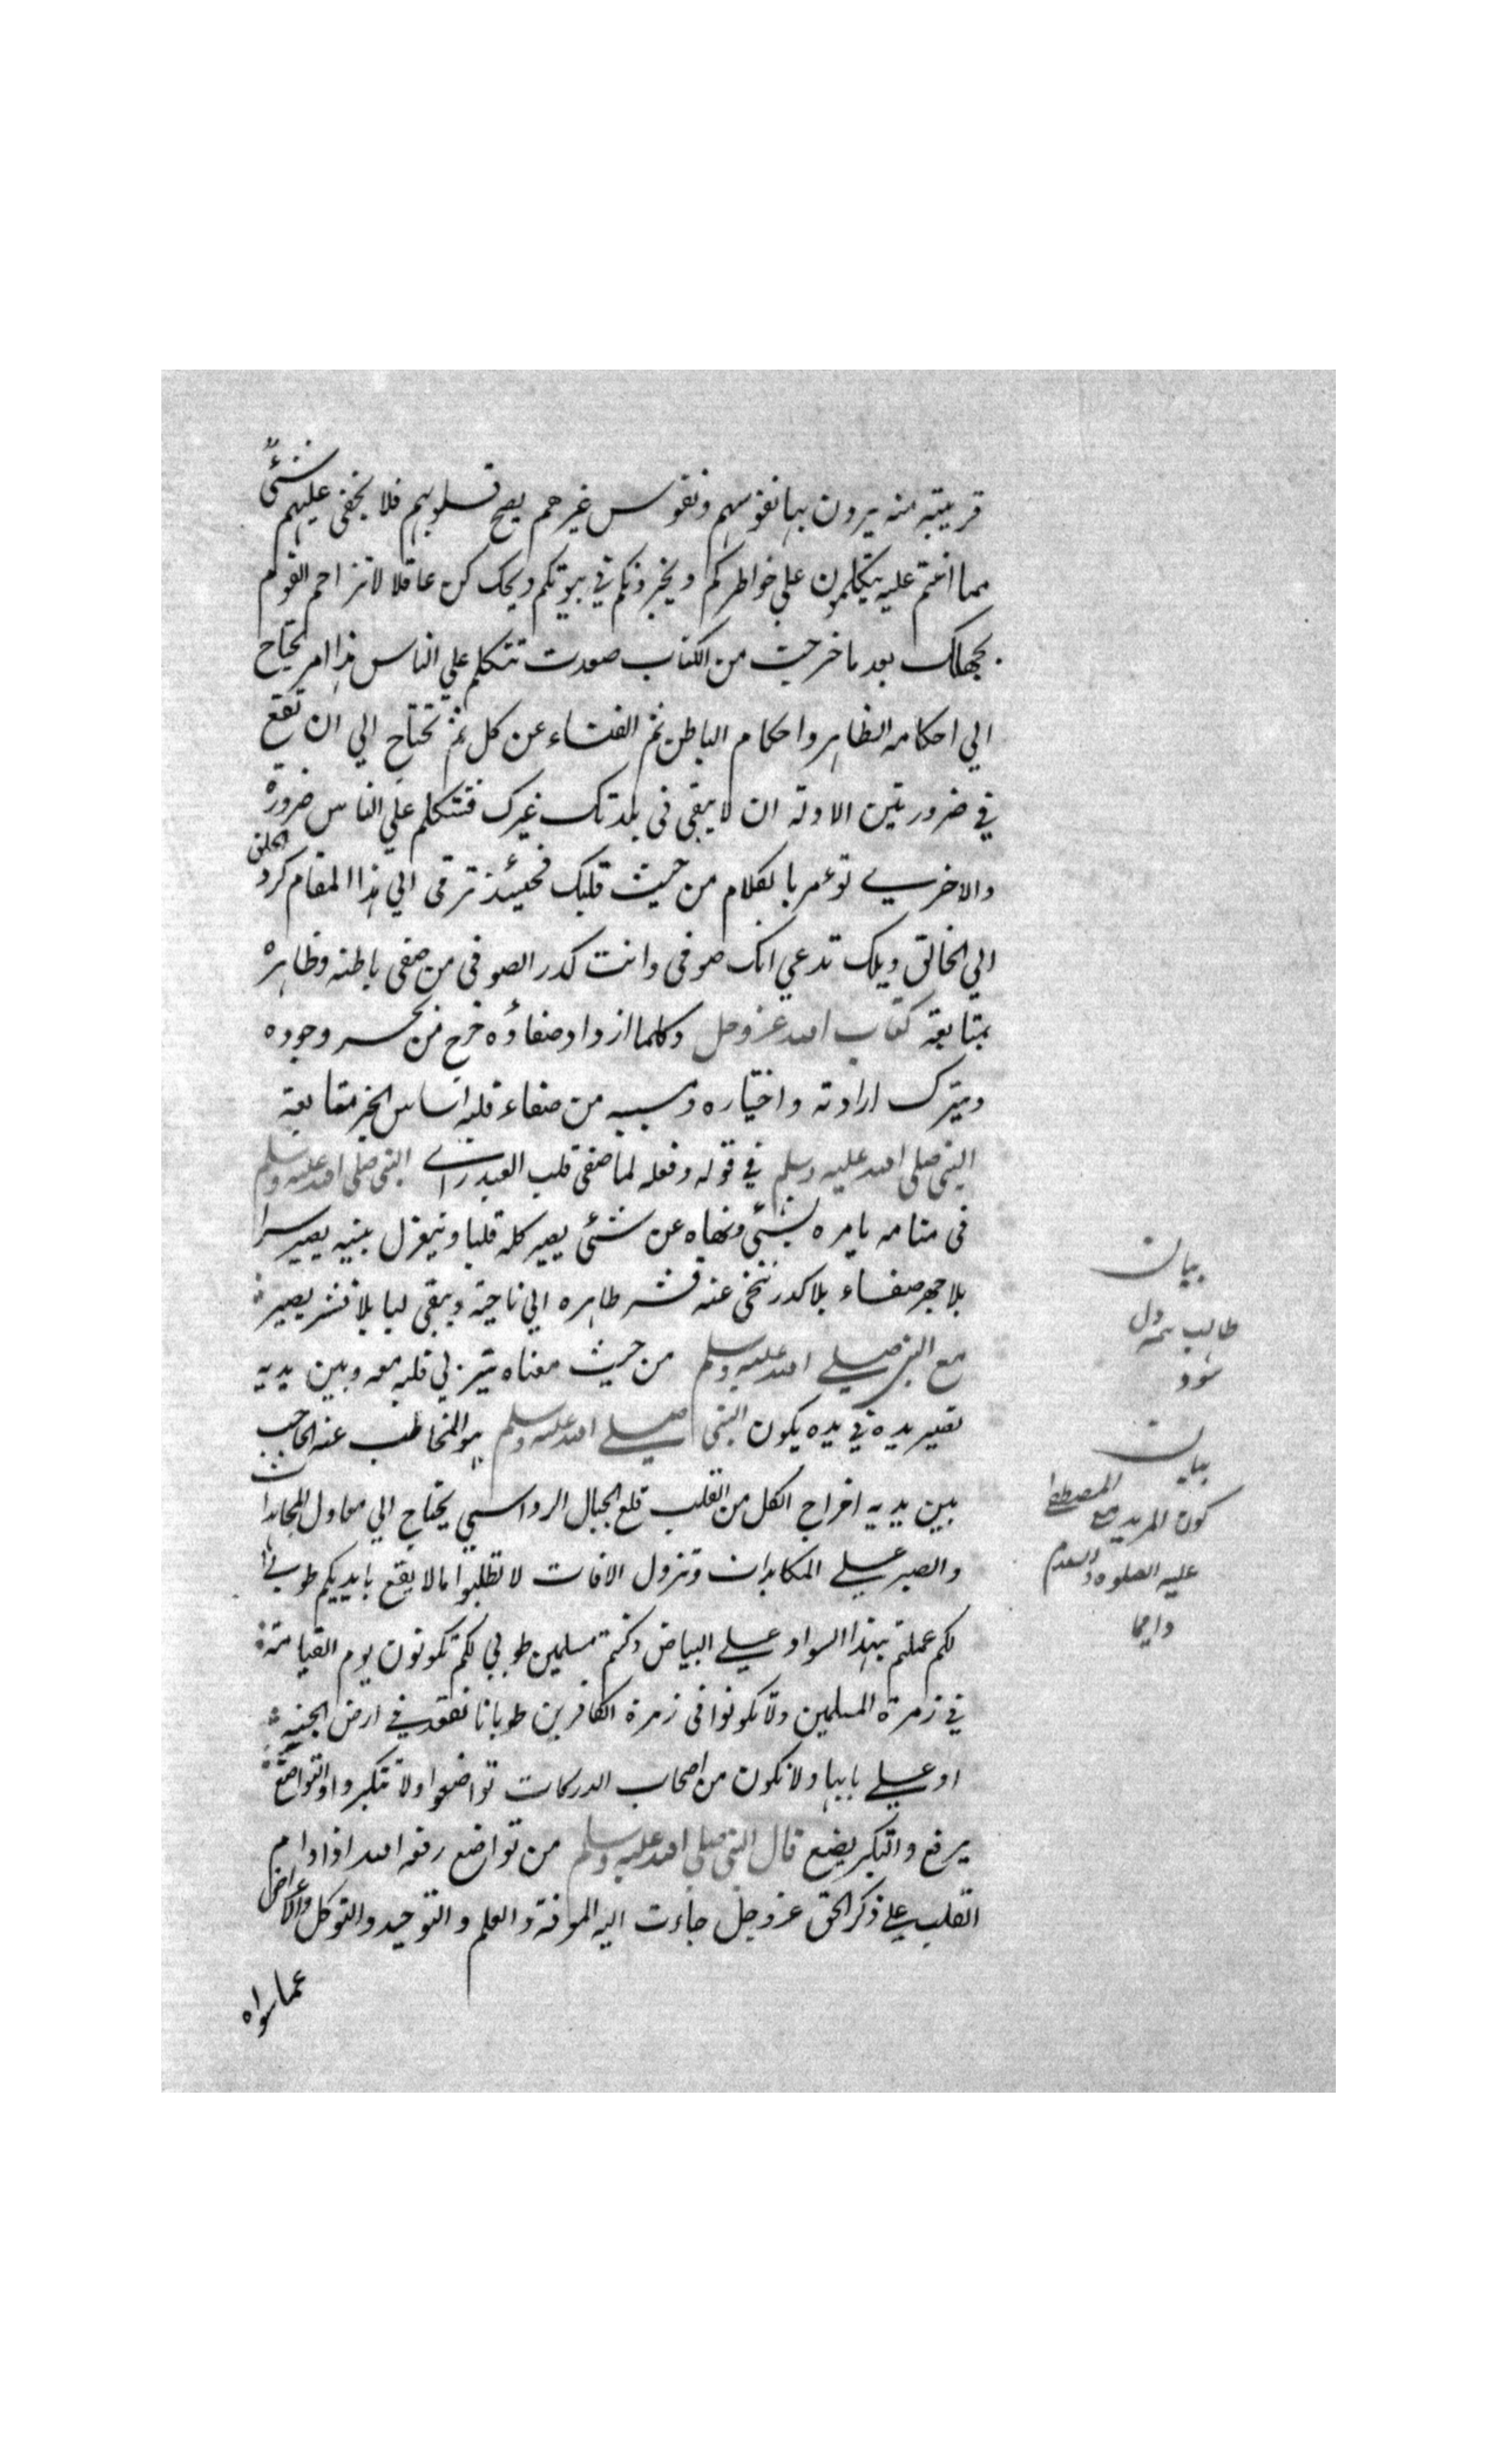 قريبته منه يرون بها نفوسهم ونفوس غيرهم يصح قلوبهم فلا يخفى عليهم شئ
مما انتم عليه يتكلمون علي خواطركم ويخبرونكم في بيوتكم ويحك كن عاقلا لا تزاحم القوم
بجهلك بعد ما خرجت من الكتاب صعدت تتكلم علي الناس هذا امر يحتاج
الي احكام الظاهر واحكام الباطن ثم الغناء عن كل ثم تحتاج الي ان تقع
في ضرورتين الاولة ان لا يبقى فى بلدتك غيرك فتتكلم علي الناس ضرورة
والاخرى تؤمر بالكلام من حيث قلبك فحينئذ ترقى الي هذا المقام كرد الخلق
الي الخالق ويلك تدعي انك صوفى وانت كدر الصوفى من صفى باطنه وظاهره
بمتابعة كتاب الله عز وجل وكلما ازداد صفاؤه خرج من بحر وجوده
ويترك ارادته واختياره ومسببه من صفاء قلبه اساس الخير متابعة
النبي صلى الله عليه وسلم في قوله وفعله لما صفى قلب العبد راى النبي صلى الله عليه وسلم
فى منامه يامره بشئي ونهاه عن شئى يصير كله قلبا وينعزل بنيه يصير سرا
بلا جهر صفاء بلا كدر تنحى عنه قشر ظاهره الي ناحية ويبقى لبا بلا قشر يصير
مع النبي صلى الله عليه وسلم من حيث معناه يتربى قلبه معه وبين يديه
تصير يده في يده يكون النبي صلى الله عليه وسلم هو المخاطب عنه الحاجب
بين يديه اخراج الكل من القلب قلع الجبال الرواسي يحتاج الي معاول المجاهدات
والصبر على المكابدات ونزول الافات لا تطلبوا مالا يقع بايديكم طوبى
لكم عملتم بهذا السواد على البياض وكنتم مسلمين طوبى لكم تكونون يوم القيامة
في زمرة المسلمين ولا تكونوا فى زمرة الكافرين طوبانا نقعد في ارض الجنة
او على بابها ولا نكون من اصحاب الدركات تواضعوا ولا تتكبروا والتواضع
يرفع والتكبر يضع قال النبي صلى الله عليه وسلم من تواضع رفعه الله اذا دام
القلب على ذكر الحق عز وجل جاءت اليه المعرفة والعلم والتوحيد والتوكل والاعراض
عما سواه
بيان
طالب
بيان
كون المريد مع المصطفى
عليه الصلوة والسلام
دايما